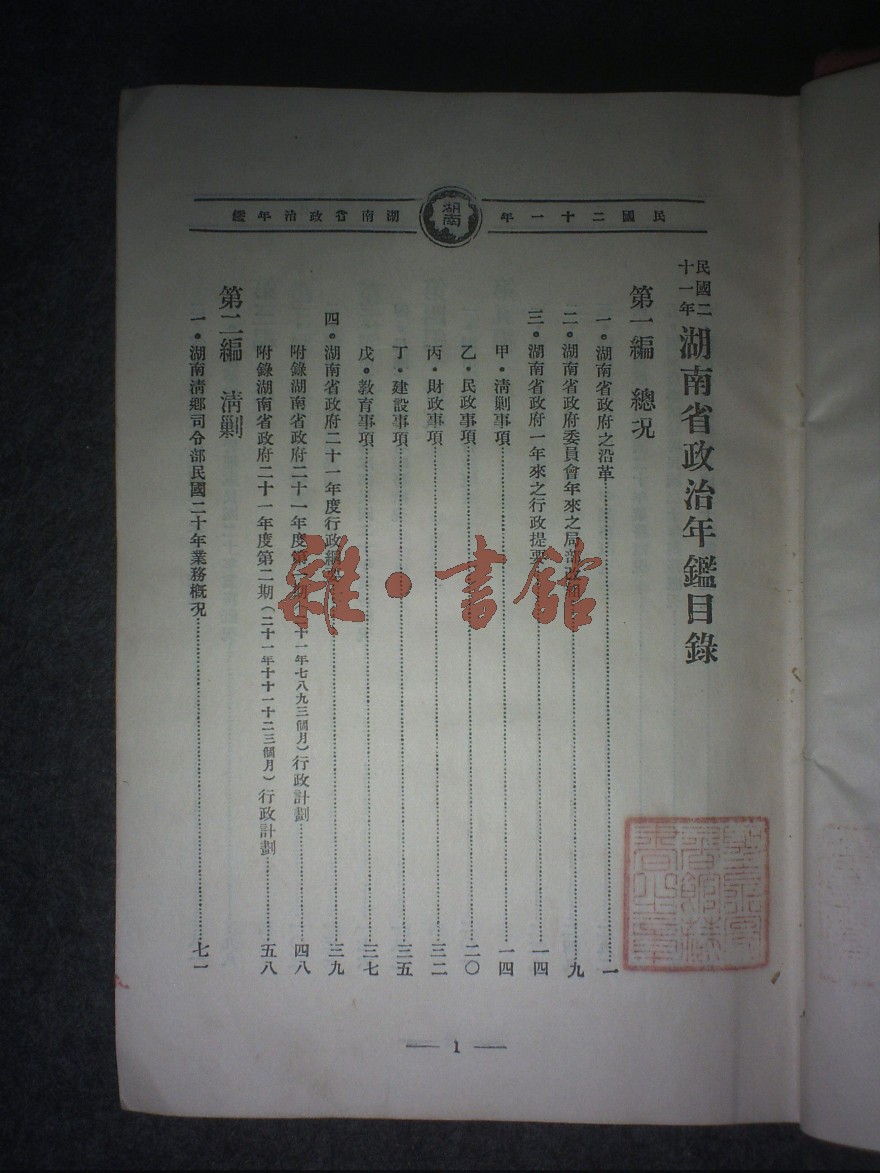 民國二十一年 湖南 湖南省政治年鑑
民國二十一年 湖南省政治年鑑目錄
第一編 總況
一•湖南省政府之沿革……一
二•湖南省政府委員會年來之局部改組……九
三•湖南省政府一年來之行政提要……一四
甲•清剿事項……一四
乙•民政事項……二〇
丙•財政事項……三二
丁•建設事項……三五
戊•教育事項……三七
四•湖南省政府二十一年度行政綱要……三九
附錄湖南省政府二十一年度第一期(二十一年七八九三個月)行政計劃……四八
附錄湖南省政府二十一年度第二期(二十一年十十一十二三個月)行政計劃……五八
第二編 清剿
一•湖南清鄉司令部民國二十年業務概況……七一
— 1 —
雜•書館